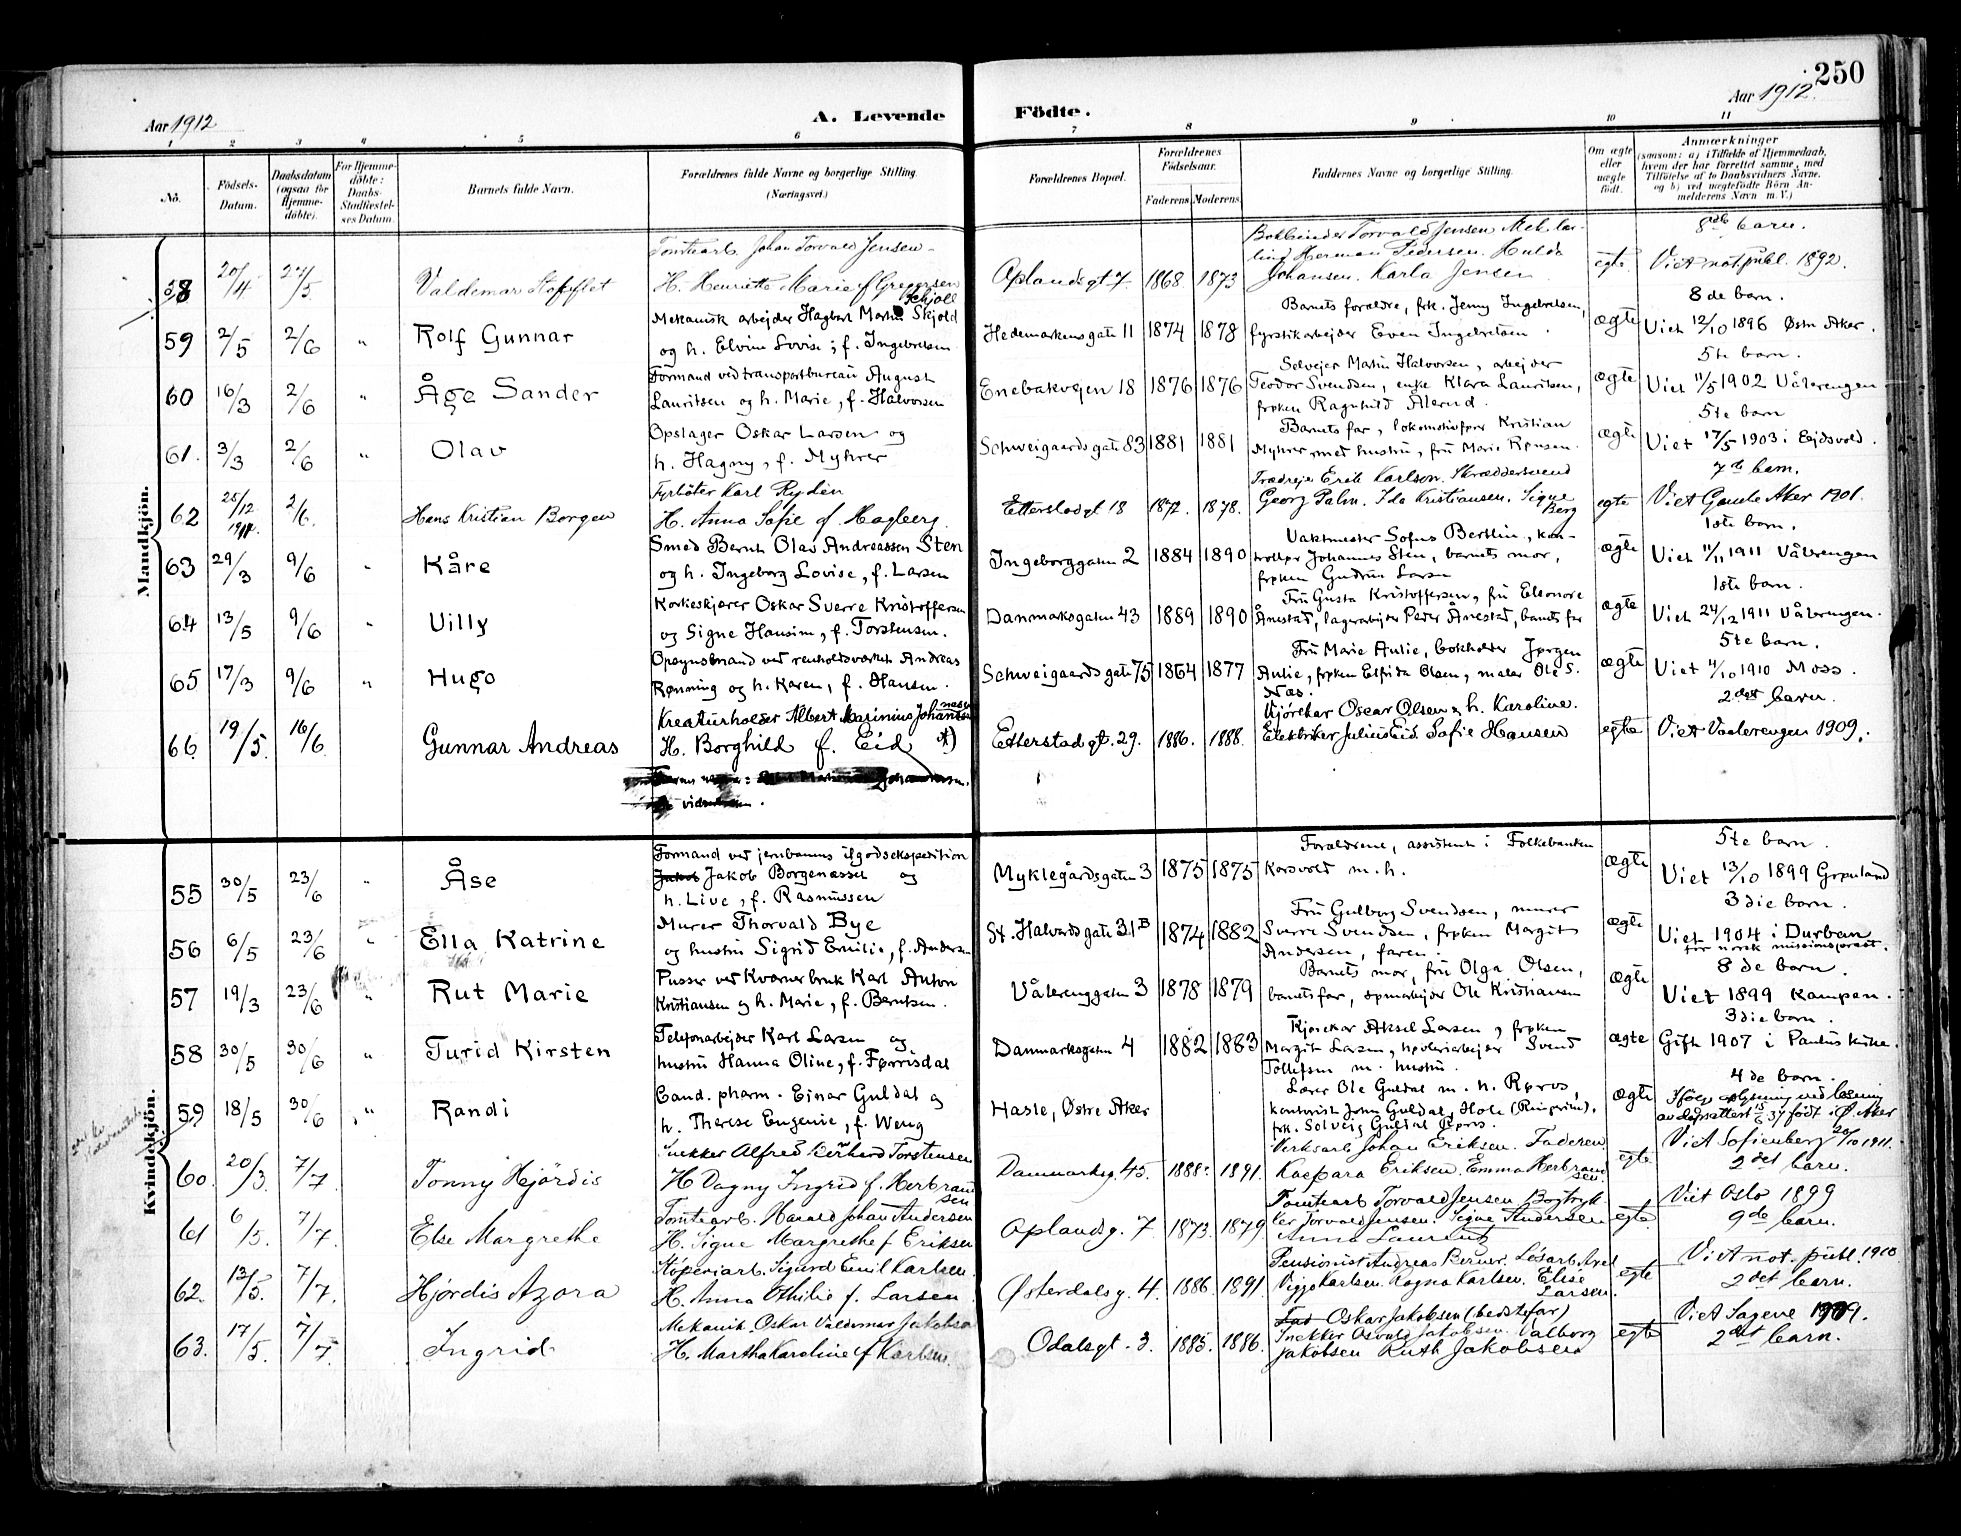 250
Aar 1912
A. Levende Födte.
Aar 1912.
1 2 3 4 5 6 7 8 9 10 11
No.
Födsels-Datum.
Daabsdatum (ogsaa for Hjemmedöbte).
For Hjemmedöbte: Daabs-Stadfæstelses Datum.
Barnets fulde Navn.
Forældrenes fulde Navne og borgerlige Stilling. (Næringsvei.)
Forældrenes Bopæl.
Forældrenes Födselsaar.
Faderens Moderens
Faddernes Navne og borgerlige Stilling.
Om ægte eller uægte födt.
Anmærkninger
(saasom: a) i Tilfælde af Hjemmedaab, hvem der har forrettet samme, med Tilföielse af to Daabsvidners Navne, og b) ved uægtefödte Börn Anmelderens Navn m. V.)
Mandkjön.
58 20/4 27/5 Valdemar
Tomtearb. Johan Torvald Jensen
H. Henriette Marie f. Gregersen
Oplandsgt 7. 1868 1873
Bokbinder Torvald Jensen
Herman Pedersen. Hulda
Johansen. Karla Jensen
egte
8de barn.
Viet not. publ. 1892.
59 2/5 2/6 " Rolf Gunnar
Mekanisk arbejder Hagbart Martin Skjold
og h. Elvine Lovise, f. Ingebretsen
Hedemarkensgate 11 1874 1878
Barnets forældre, frk. Jenny Ingebretsen,
fyrstikarbejder Even Ingebretsen.
ægte
8de barn.
Viet 12/10 1896 Østre Aker.
60 16/3 2/6 " Åge Sander
Formand ved transportbureau August
Lauritsen og h. Marie, f. Halvorsen
Enebakvejen 18 1876 1876
Selvejer Martin Halvorsen, arbejder
Teodor Svendsen, enke Klara Lauritsen,
frøken Ragnhild
ægte
5te barn.
Viet 11/5 1902 Vålerengen
61. 3/3 2/6 " Olav
Opslager Oskar Larsen og
h. Hagny, f. Myhrer
Schweigaardsgate 83 1881 1881
Barnets far, lokomotivfører Kristian
Myhrer med hustru, fru Marie Rønsen.
ægte
5te barn
Viet 17/5 1903 i Ejdsvold.
62 25/12 1911. 2/6. Hans Kristian Borgen
Fyrböter Karl Rydén
H. Anna Sofie f. Hagberg.
Etterstadgt 18 1872. 1878.
Trædreje Erik Karlson. Skræddersvend
Georg Palm. Ida Kristiansen. Signe
Berg
egte
7de barn.
Viet Gamle Aker 1901.
63 29/3 9/6 " Kåre
Smed Bernt Olav Andreassen Sten
og h. Ingeborg Lovise, f. Larsen
Ingeborggaten 2 1884 1890
Vaktmester Sofus Berthin, kontrollør Johannes Sten, barnets mor,
frøken Gudrun Larsen
ægte
1ste barn.
Viet 11/11 1911 Vålerengen
64 13/5 9/6 " Villy
Korkeskjærer Oskar Sverre Kristoffersen
og Signe Hansine, f. Torstensen.
Danmarksgaten 43 1889 1890
Fru Gusta Kristoffersen, fru Eleonore
Ånestad, lagerarbejder Peder Ånestad, barnets far
ægte
1ste barn.
Viet 24/12 1911 Vålerengen.
65 17/3 9/6 " Hugo
Opsynsmand ved renholdsverket Andreas
Rønning og h. Karen, f. Hansen.
Schweigaardsgate 75 1864 1877
Fru Marie Aulie, bokholder Jørgen
Aulie, frøken Elfrida Olsen, maler Ole S.
Næs.
ægte
5te barn.
Viet 4/10 1910 Moss.
66. 19/5. 16/6. Gunnar Andreas
Kreaturholder Albert Marinius Johannesen
H. Borghild f. Eid *)
Etterstadgt. 29. 1886. 1888.
Kjörekar Oscar Olsen & h. Karoline.
Elektriker Julius Eid. Sofie Hansen
egte
2det barn.
Viet Vaalerengen 1909.
Kvindekjön.
55 30/5 23/6 " Åse
Formand ved jernbanens ilgodsekspedition
Jakob Borgenæsset og
h. Live, f. Rasmussen
Myklegårdsgaten 3 1875 1875
Forældrene, assistent i Folkebanken
Korsvold m. h.
ægte
5te barn.
Viet 13/10 1899 Grønland
56 6/5 23/6 " Ella Katrine
Murer Thorvald Bye
og hustru Sigrid Emilie, f. Andersen
St. Halvardsgate 31B 1874 1882
Fru Gulborg Svendsen, murer
Sverre Svendsen, frøken Margit
Andersen, faren.
ægte
3die barn.
Viet 1904 i Durban
for norsk missionsprest.
57 19/3 23/6 " Rut Marie
Pusser ved Kværnerbruk Karl Anton
Kristiansen og h. Marie, f. Berntsen.
Vålerenggaten 3 1878 1879
Barnets mor, fru Olga Olsen,
barnets far, sporarbejder Ole Kristiansen
ægte
8de barn.
Viet 1899 Kampen.
58 30/5 30/6 " Turid Kirsten
Telefonarbejder Karl Larsen og
hustru Hanna Oline, f. Førrisdal
Danmarksgaten 4 1882 1883
Kjørekar Aksel Larsen, frøken
Margit Larsen, støperiarbejder Svend
Tollefsen m. hustru.
ægte
3die barn.
Gift 1907 i Paulus kirke.
59 18/5 30/6 " Randi
Cand. pharm. Einar Guldal og
h. Therese Eugenie, f. Weng
Hasle, Østre Aker
Lærer Ole Guldal m. h. Røros,
kontorist John Guldal, Hole (Ringerike),
frk. Solveig Guldal Røros
ægte
4de barn.
60. 20/3. 7/7. Tonny Hjördis
Snekker Alfred Gerhard Torstensen
H. Dagny Ingrid f. Herbrandsen
Danmarksg. 45. 1888. 1891.
Verksarb. Johan Eriksen. Faderen
Kaspara Eriksen. Emma Herbrandsen.
egte
Viet Sofienberg 20/10 1911.
2det barn.
61 6/5. 7/7. Else Margrethe
Tomtearb. Harald Johan Andersen
H. Signe Margrethe f. Eriksen
Oplandsg. 7. 1873. 1879.
Tomtearb. Torvald Jensen Bogtrykker Torvald Jensen. Signe Andersen
Anna Laurentz
egte
Viet Oslo 1899
9de barn.
62. 13/5. 7/7. Hjördis Azora
Støperiarb. Sigurd Emil Karlsen.
H. Anna Othilie f. Larsen.
Østerdalsg. 4. 1886. 1891.
Pensionist Andreas Berner. Lösarb. Axel
Viggo Karlsen. Ragna Karlsen. Elise
Larsen.
egte
Viet not. publ. 1910
2det barn.
63. 17/5. 7/7. Ingrid
Mekanik. Oskar Valdemar Jakobsen
H. Martha Karoline f. Karlsen.
Odalsgt. 3. 1885. 1886.
Oskar Jakobsen (bedstefar)
Snekker Osvald Jakobsen. Valborg
Jakobsen Ruth Jakobsen
egte
Viet Sagene 1909.
2det barn.